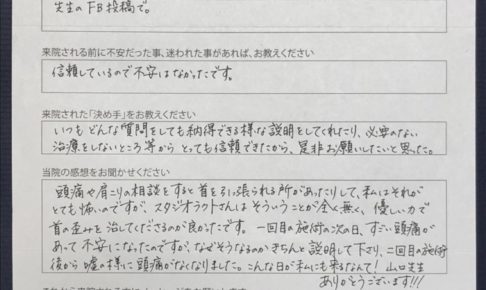 先生のFB投稿で。
来院される前に不安だった事、迷われた事があれば、お教えください
信頼しているので不安はなかったです。
来院された「決め手」をお教えください
いつもどんな質問をしても納得できる様な説明をしてくれたり、必要のない
治療をしないところ等からとっても信頼できたから、是非お願いしたいと思った。
当院の感想をお聞かせください
頭痛や肩こりの相談をすると首を引っ張られる所があったりして、私はそれが
とても怖いのですが、スタジオラクトさんはそういうことが全く無く、優しい力で
首の歪みを治してくださるのが良かったです。一回目の施術の次の日、すごい頭痛が
あって不安になったのですが、なぜそうなるのかきちんと説明して下さり、二回目の施術
後から嘘の様に頭痛がなくなりました。こんな日が私にも来るなんて!山口先生
ありがとうございます!!!